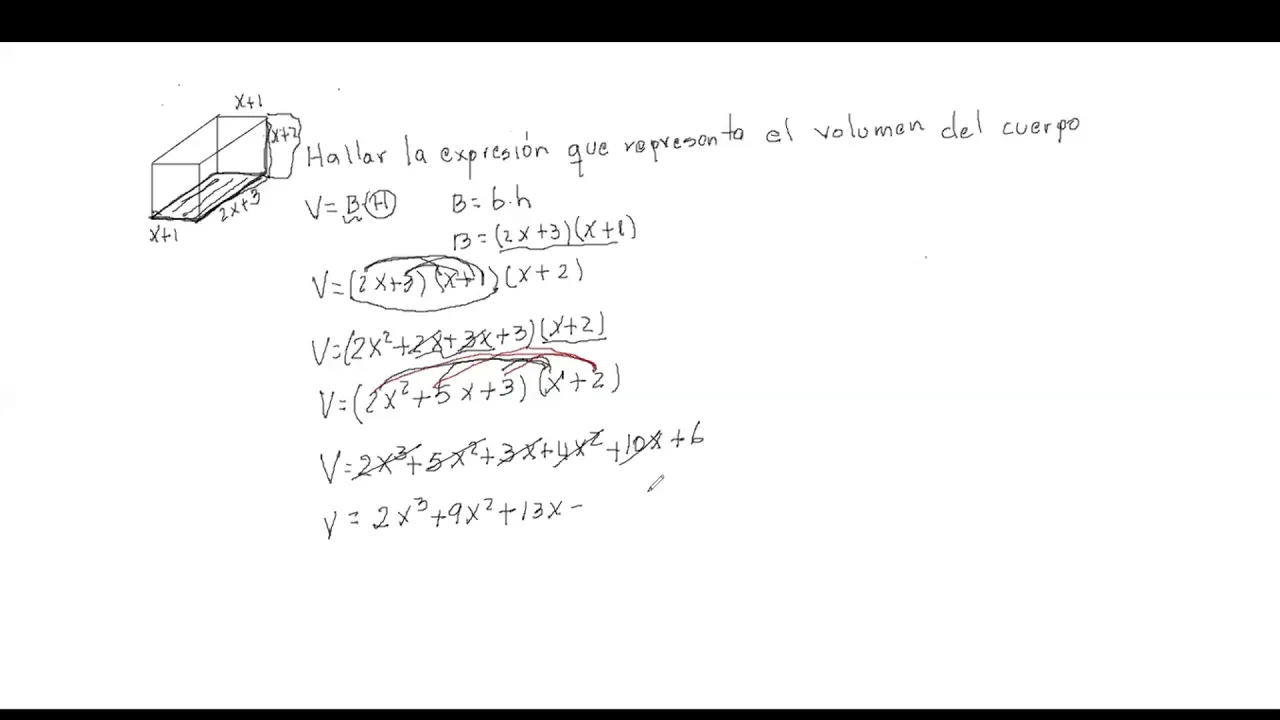 x+1
x+2
Hallar la expresión que representa el volumen del cuerpo
2x+3
x+1
V=B·H B=b·h
B=(2x+3)(x+1)
V=(2x+3)(x+1)(x+2)
V=(2x²+2x+3x+3)(x+2)
V=(2x²+5x+3)(x+2)
V=2x³+5x²+3x+4x²+10x+6
V=2x³+9x²+13x-